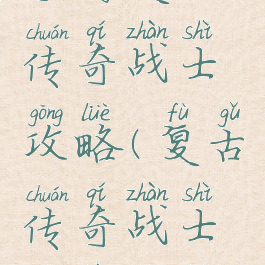 chuán qí zhàn shì
传奇战士
gōng lüè fù gǔ
攻略(复古
chuán qí zhàn shì
传奇战士